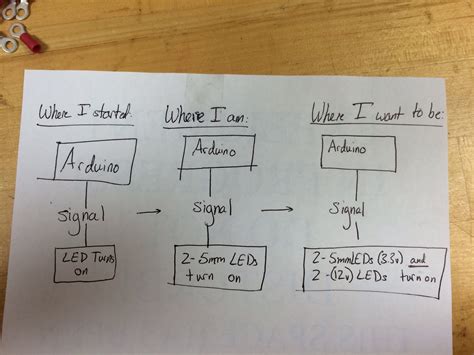 Where I started:
Arduino
signal
LED Turns
on
→
Where I am:
Arduino
signal
2-5mm LEDs
turn on
→
Where I want to be:
Arduino
signal
2-5mmLEDs (3.3v) and
2-(12v) LEDs turn on